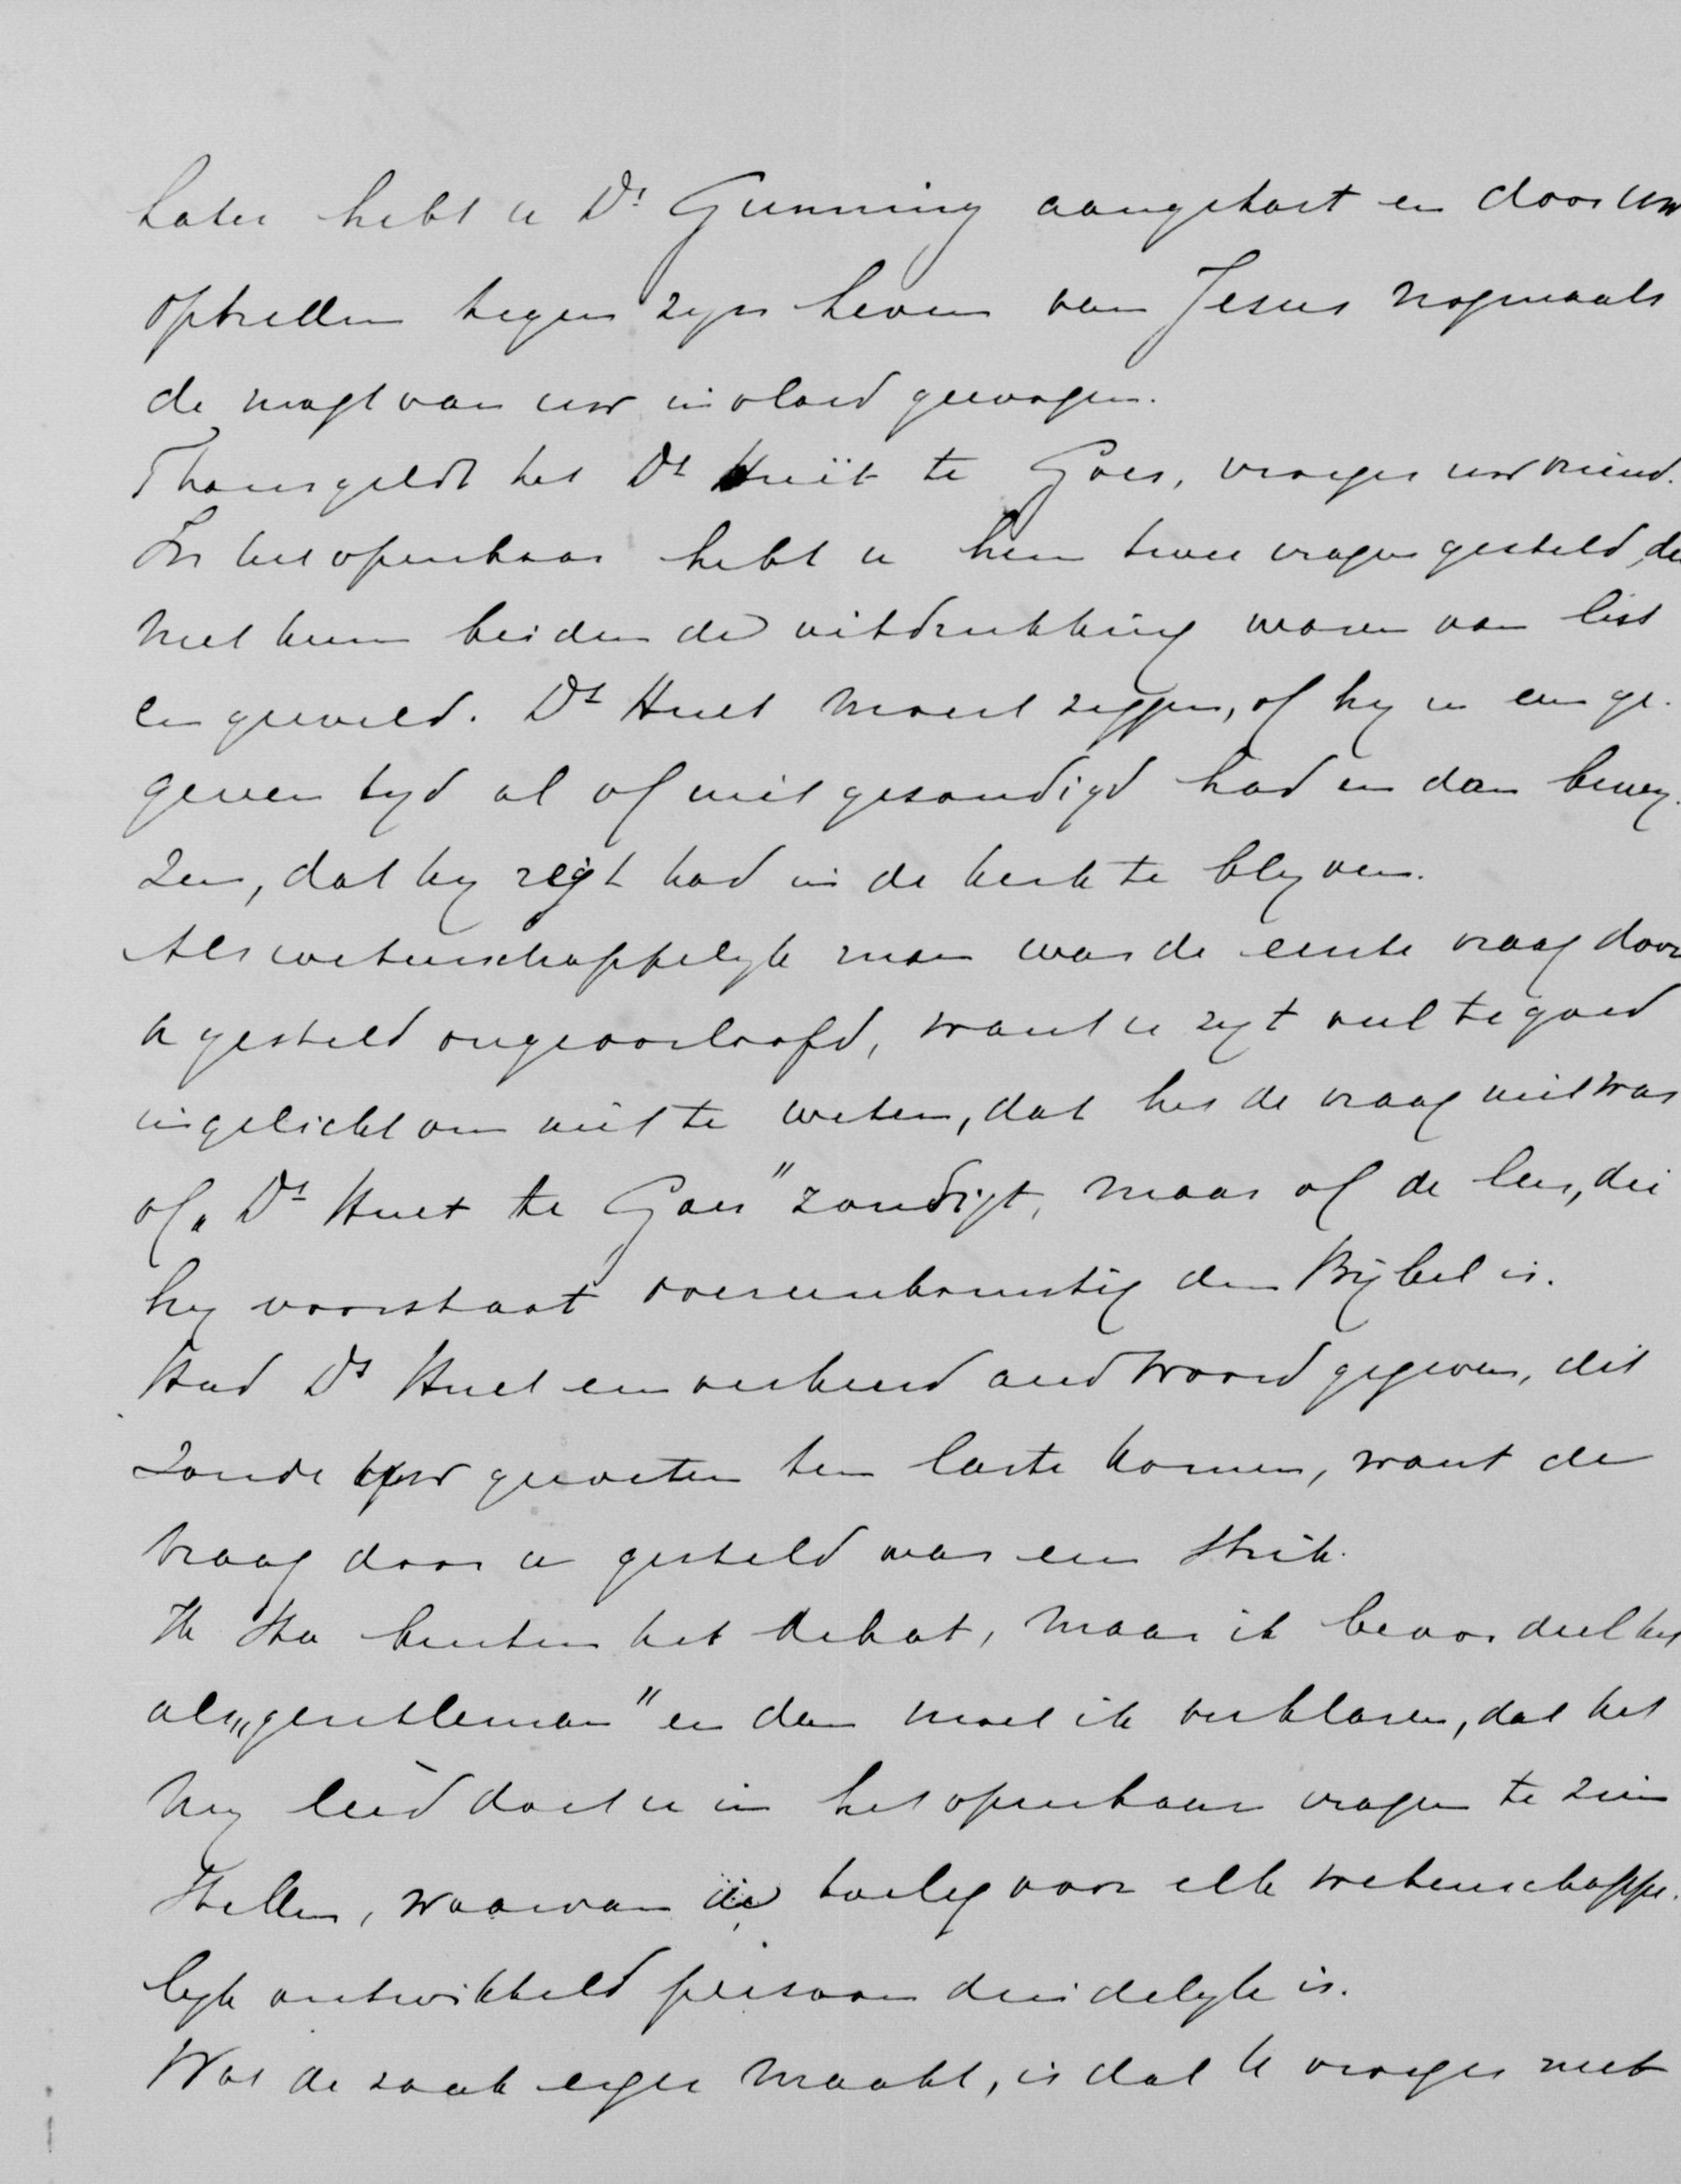 Later hebt u Ds Gunning aangetast en door uw
optreden tegen zyn leven van Jesus nogmaals
de magt van uw invloed gewogen.
Thans geldt het Ds Huët te Goes, vroeger uw vriend.
In het openbaar hebt u hem twee vragen gesteld, die
met hun beiden de uitdrukking waren van list
en geweld. Ds Huet moest zeggen, of hy in een ge-
geven tyd al of niet gezondigd had en dan bewy-
zen, dat hy regt had in de kerk te blyven.
Als wetenschappelyk man was de eerste vraag door
u gesteld ongeoorloofd, want u zyt veel te goed
ingelicht om niet te weten, dat het de vraag niet was
of „Ds Huet te Goes" zondigt, maar of de leer, die
hy voorstaat overeenkomstig den Bijbel is.
Had Ds Huet een verkeerd andwoord gegeven, dit
zoude uw geweten ten laste komen, want de
vraag door u gesteld was een strik.
Ik sta buiten het debat, maar ik beoordeel het
als „gentleman" en dan moet ik verklaren, dat het
my leed doet u in het openbaar vragen te zien
stellen, waarvan de toeleg voor elk wetenschappe-
lyk ontwikkeld persoon duidelyk is.
Wat de zaak erger maakt, is dat U vroeger met